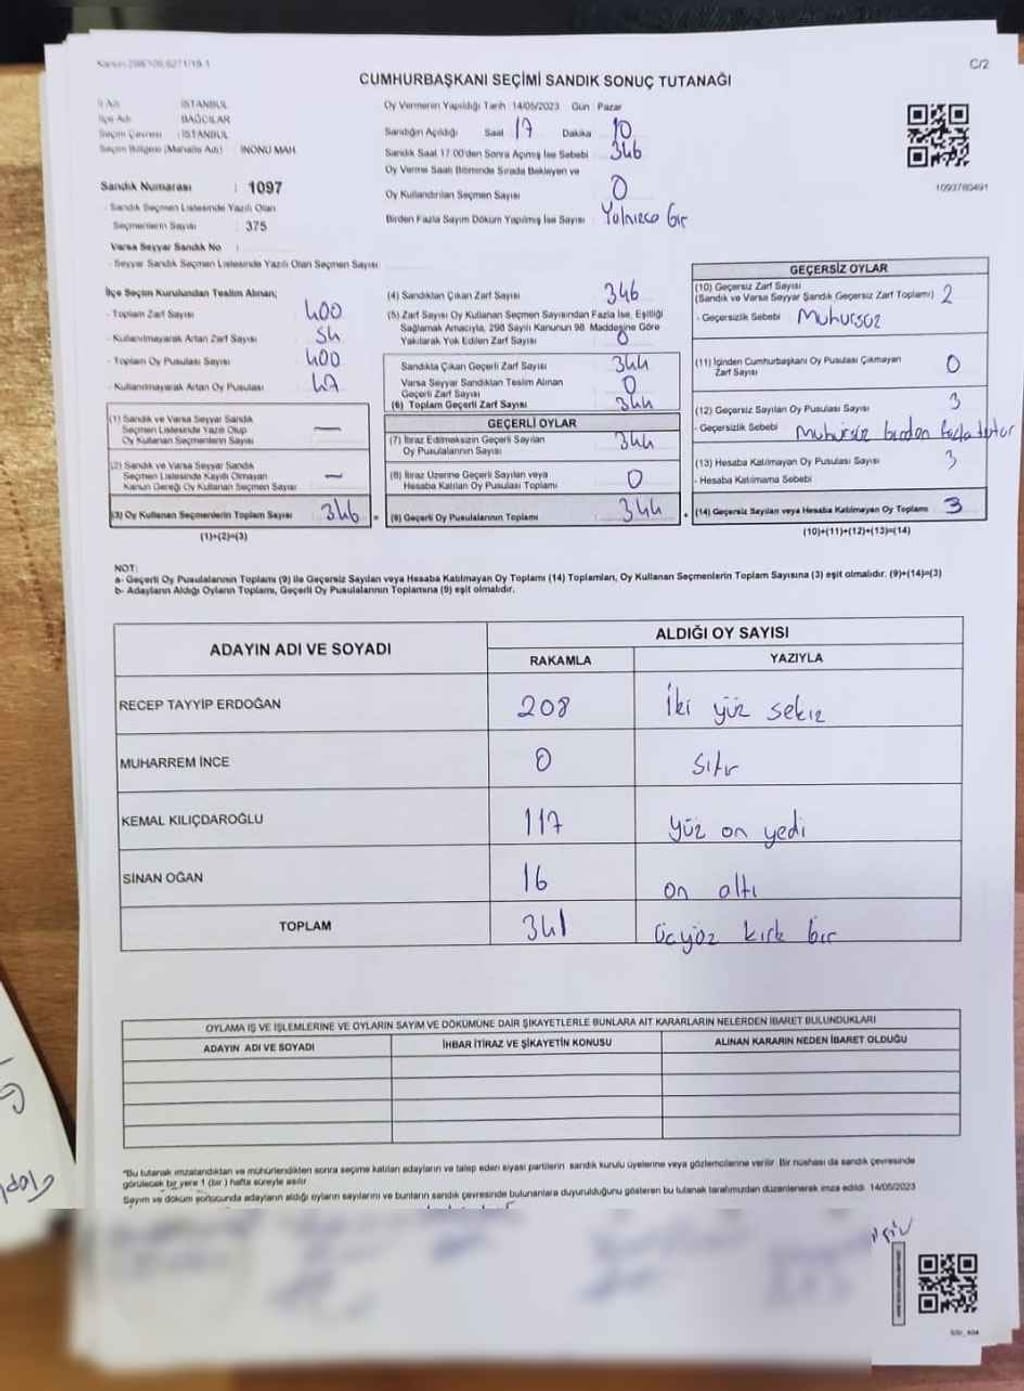 C/2
CUMHURBAŞKANI SEÇİMİ SANDIK SONUÇ TUTANAĞI
İl Adı : İSTANBUL
İlçe Adı : BAĞCILAR
Seçim Çevresi : İSTANBUL
Seçim Bölgesi (Mahalle Adı) : İNÖNÜ MAH.
Sandık Numarası : 1097
- Sandık Seçmen Listesinde Yazılı Olan
Seçmenlerin Sayısı : 375
Varsa Seyyar Sandık No :
- Seyyar Sandık Seçmen Listesinde Yazılı Olan Seçmen Sayısı:
Oy Vermenin Yapıldığı Tarih 14/05/2023 Gün Pazar
Sandığın Açıldığı Saat 17 Dakika 10
Sandık Saat 17:00'den Sonra Açımış İse Sebebi 346
Oy Verme Saati Bitiminde Sırada Bekleyen ve
Oy Kullandırılan Seçmen Sayısı 0
Birden Fazla Sayım Döküm Yapılmış İse Sayısı Yalnızca bir
1093780491
İlçe Seçim Kurulundan Teslim Alınan;
- Toplam Zarf Sayısı 400
- Kullanılmayarak Artan Zarf Sayısı 54
- Toplam Oy Pusulası Sayısı 400
- Kullanılmayarak Artan Oy Pusulası
(1) Sandık ve Varsa Seyyar Sandık
Seçmen Listesinde Yazılı Olup
Oy Kullanan Seçmenlerin Sayısı —
(2) Sandık ve Varsa Seyyar Sandık
Seçmen Listesinde Kaydı Olmayan
Kanun Gereği Oy Kullanan Seçmen Sayısı —
(3) Oy Kullanan Seçmenlerin Toplam Sayısı 346
(1)+(2)=(3)
(4) Sandıktan Çıkan Zarf Sayısı 346
(5) Zarf Sayısı Oy Kullanan Seçmen Sayısından Fazla İse, Eşitliği
Sağlamak Amacıyla, 298 Sayılı Kanunun 98. Maddesine Göre
Yakılarak Yok Edilen Zarf Sayısı 0
Sandıkta Çıkan Geçerli Zarf Sayısı 344
Varsa Seyyar Sandıktan Teslim Alınan
Geçerli Zarf Sayısı 0
(6) Toplam Geçerli Zarf Sayısı 344
GEÇERLİ OYLAR
(7) İtiraz Edilmeksizin Geçerli Sayılan
Oy Pusulalarının Sayısı 344
(8) İtiraz Üzerine Geçerli Sayılan veya
Hesaba Katılan Oy Pusulası Toplamı 0
(9) Geçerli Oy Pusulalarının Toplamı 344
GEÇERSİZ OYLAR
(10) Geçersiz Zarf Sayısı
(Sandık ve Varsa Seyyar Sandık Geçersiz Zarf Toplamı) 2
- Geçersizlik Sebebi Muhürsüz
(11) İçinden Cumhurbaşkanı Oy Pusulası Çıkmayan
Zarf Sayısı 0
(12) Geçersiz Sayılan Oy Pusulası Sayısı 3
- Geçersizlik Sebebi Muhürsüz birden fazla
(13) Hesaba Katılmayan Oy Pusulası Sayısı 3
- Hesaba Katılmama Sebebi
(14) Geçersiz Sayılan veya Hesaba Katılmayan Oy Toplamı 3
(10)+(11)+(12)+(13)=(14)
NOT:
a- Geçerli Oy Pusulalarının Toplamı (9) ile Geçersiz Sayılan veya Hesaba Katılmayan Oy Toplamı (14) Toplamları, Oy Kullanan Seçmenlerin Toplam Sayısına (3) eşit olmalıdır. (9)+(14)=(3)
b- Adayların Aldığı Oyların Toplamı, Geçerli Oy Pusulalarının Toplamına (9) eşit olmalıdır.
ADAYIN ADI VE SOYADI ALDIĞI OY SAYISI
RAKAMLA YAZIYLA
RECEP TAYYİP ERDOĞAN 208 İki yüz sekiz
MUHARREM İNCE 0 Sıfır
KEMAL KILIÇDAROĞLU 117 Yüz on yedi
SİNAN OĞAN 16 on altı
TOPLAM 341 Üçyüz kırk bir
OYLAMA İŞ VE İŞLEMLERİNE VE OYLARIN SAYIM VE DÖKÜMÜNE DAİR ŞİKAYETLERLE BUNLARA AİT KARARLARIN NELERDEN İBARET BULUNDUKLARI
ADAYIN ADI VE SOYADI İHBAR İTİRAZ VE ŞİKAYETİN KONUSU ALINAN KARARIN NEDEN İBARET OLDUĞU
"Bu tutanak imzalandıktan ve mühürlendikten sonra seçime katılan adayların ve talep eden siyasi partilerin sandık kurulu üyelerine veya gözlemcilerine verilir. Bir nüshası da sandık çevresinde
görülecek bir yere 1 (bir) hafta süreyle asılır.
Sayım ve döküm sonucunda adayların aldığı oyların sayılarını ve bunların sandık çevresinde bulunanlara duyurulduğunu gösteren bu tutanak tarafımızdan düzenlenerek imza edildi. 14/05/2023